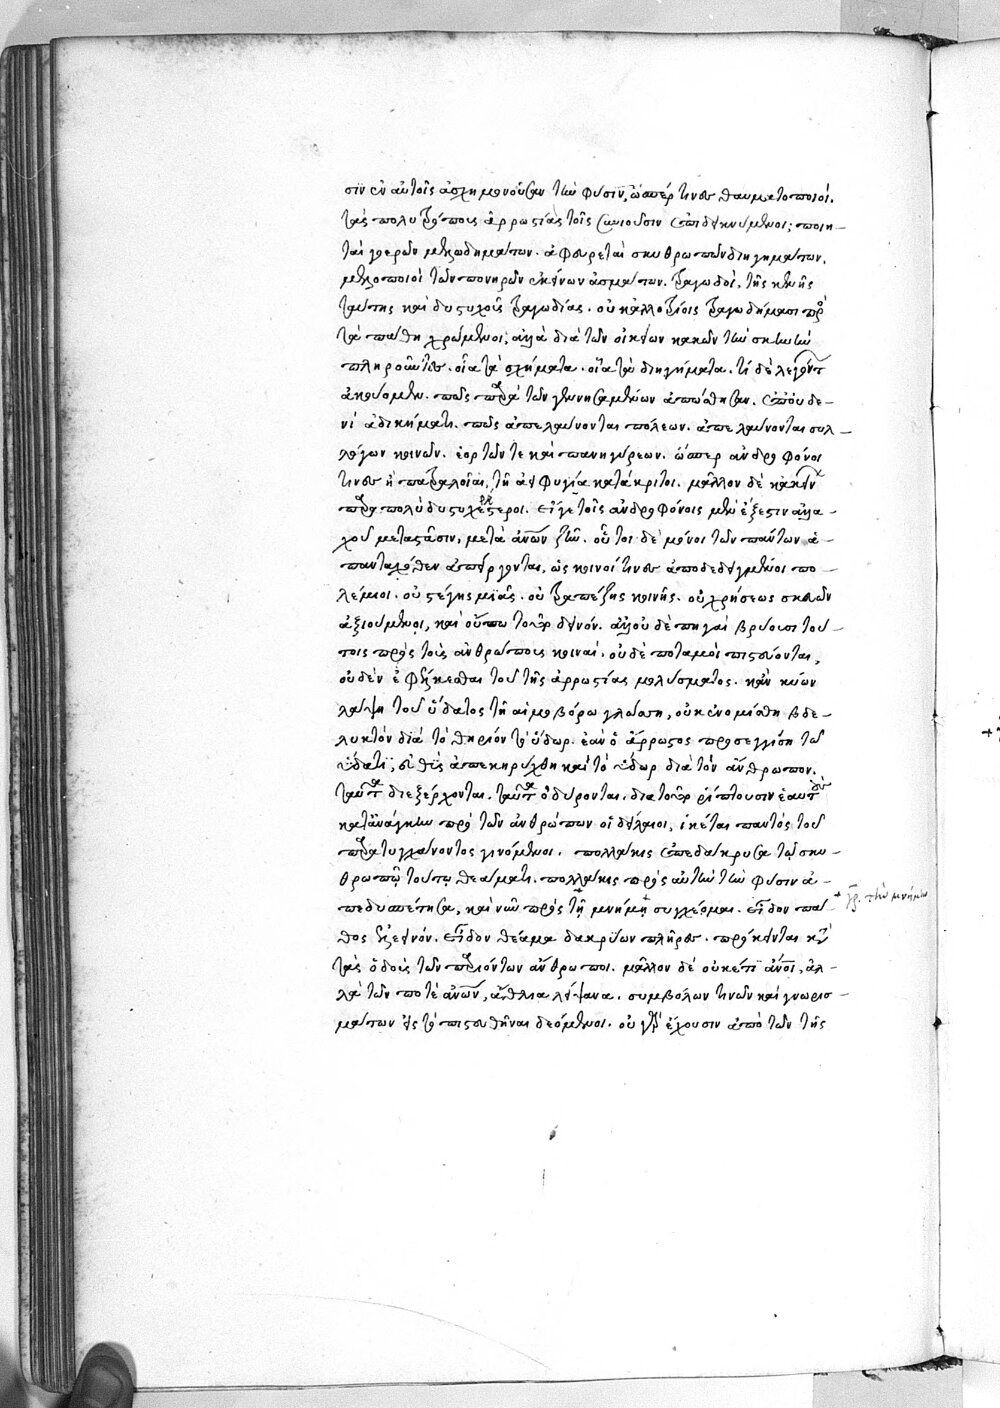 σιν ἐν αὐτοῖς ἀσχημονοῦσαν τὴν φύσιν, ὥσπερ τινὲς θαυματοποιοὶ.
τὰς πολυτρόπους ἀρρωστίας τοῖς συνιοῦσιν ἐπιδεικνύμενοι; ποιη-
ταὶ γοερῶν μελωδημάτων. ἀφευρεταὶ σκυθρωπῶν διηγημάτων.
μελοποιοὶ τῶν πονηρῶν ἐκείνων ἀσμάτων. τραγωδοὶ, τῆς καινῆς
ταύτης καὶ δυστυχοῦς τραγωδίας. οὐκ ἀλλοτρίοις τραγωδήμασι πρὸς
τὰ πάθη χρώμενοι, ἀλλὰ διὰ τῶν οἰκείων κακῶν τὴν σκηνὴν
πληροῦντες. οἷα τὰ σχήματα. οἷα τὰ διηγήματα. τί δὲ λεγόντων
ἀκούομεν. πῶς παρὰ τῶν γεννησαμένων ἀπώσθησαν. ἐπ' οὐδε-
νὶ ἀδικήματι. πῶς ἀπελαύνονται πόλεων. ἀπελαύνονται συλ-
λόγων κοινῶν. ἑορτῶν τε καὶ πανηγύρεων. ὥσπερ ἀνδροφόνοι
τινὲς ἢ πατραλοῖαι, τῇ ἀειφυγίᾳ κατάκριτοι. μᾶλλον δὲ κἀκείνων
παρὰ πολὺ δυστυχέστεροι. εἴ γε τοῖς ἀνδροφόνοις μὲν ἔξεστιν ἀλλα-
χοῦ μεταστᾶσιν, μετὰ ἀνων ζῆν. οὗτοι δὲ μόνοι τῶν πάντων ἁ-
πανταχόθεν ἀπείργονται, ὡς κοινοί τινες ἀποδεδειγμένοι πο-
λέμιοι. οὐ στέγης μιᾶς. οὐ τραπέζης κοινῆς. οὐ χρήσεως σκευῶν
ἀξιούμενοι, καὶ οὔπω τοῦτο δεινόν. ἀλλ' οὐδὲ πηγαὶ βρύουσι τού-
τοις πρὸς τοὺς ἀνθρώπους κοιναὶ. οὐδὲ ποταμοὶ πιστεύονται,
οὐδὲν ἐφέλκεσθαι τοῦ τῆς ἀρρωστίας μολύσματος. κἂν κύων
λάψῃ τοῦ ὕδατος τῇ αἱμοβόρω γλώσση, οὐκ ἐνομίσθη βδε-
λυκτὸν διὰ τὸ θηρίον τὸ ὕδωρ. ἐὰν ὁ ἄρρωστος προσεγγίση τῶ
ὕδατι, εὐθὺς ἀπεκηρύχθη καὶ τὸ ὕδωρ διὰ τὸν ἄνθρωπον.
ταῦτα διεξέρχονται. ταῦτα ὀδύρονται. διὰ τοῦτο ῥίπτουσιν ἑαυτοὺς
κατ' ἀνάγκην πρὸ τῶν ἀνθρώπων οἱ δείλαιοι, ἱκέται παντὸς τοῦ
παρατυγχάνοντος γινόμενοι. πολλάκις ἐπεδάκρυσα τῷ σκυ-
θρωπῷ τούτῳ θεάματι. πολλάκις πρὸς αὐτὴν τὴν φύσιν ἀ-
πεδυσπέτησα, καὶ νῦν πρὸς + τῇ μνήμῃ + συγχέομαι. εἶδον πά-
+ γρ. τὴν μνήμην
θος ἐλεεινόν. εἶδον θέαμα δακρύων πλῆρες. πρόκεινται κατὰ
τὰς ὁδοὺς τῶν παριόντων ἄνθρωποι. μᾶλλον δὲ οὐκέτι ἄνοι, ἀλ-
λὰ τῶν ποτὲ ἀνων, ἄθλια λείψανα. συμβόλων τινῶν καὶ γνωρισ-
μάτων εἰς τὸ πιστευθῆναι δεόμενοι. οὐ γὰρ ἔχουσιν ἀπὸ τῶν τῆς